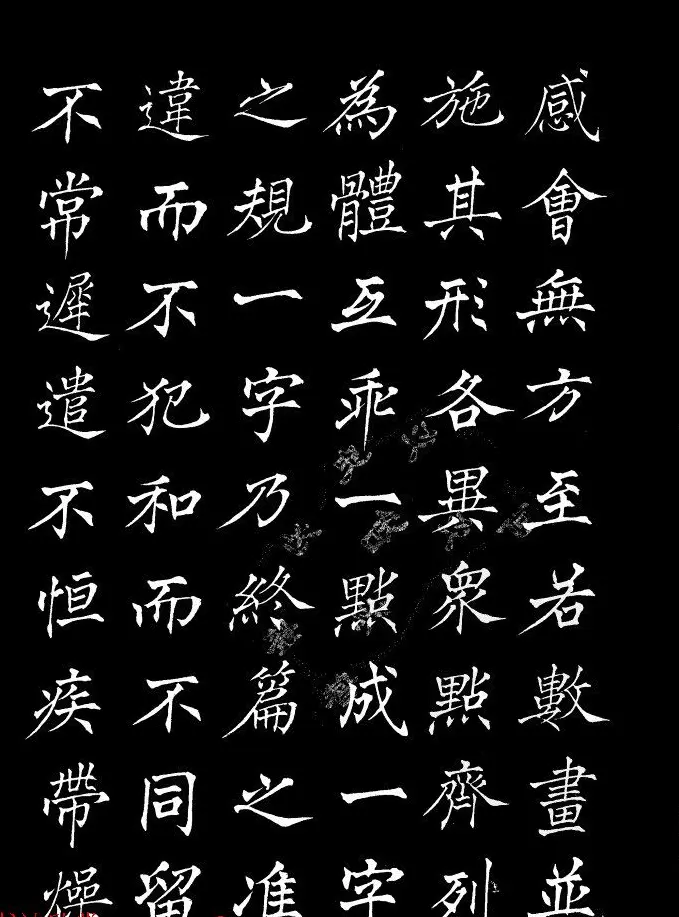 感會無方至若數畫並
施其形各異衆點齊列
為體互乖一點成一字
之規一字乃終篇之准
違而不犯和而不同留
不常遲遣不恒疾帶燥